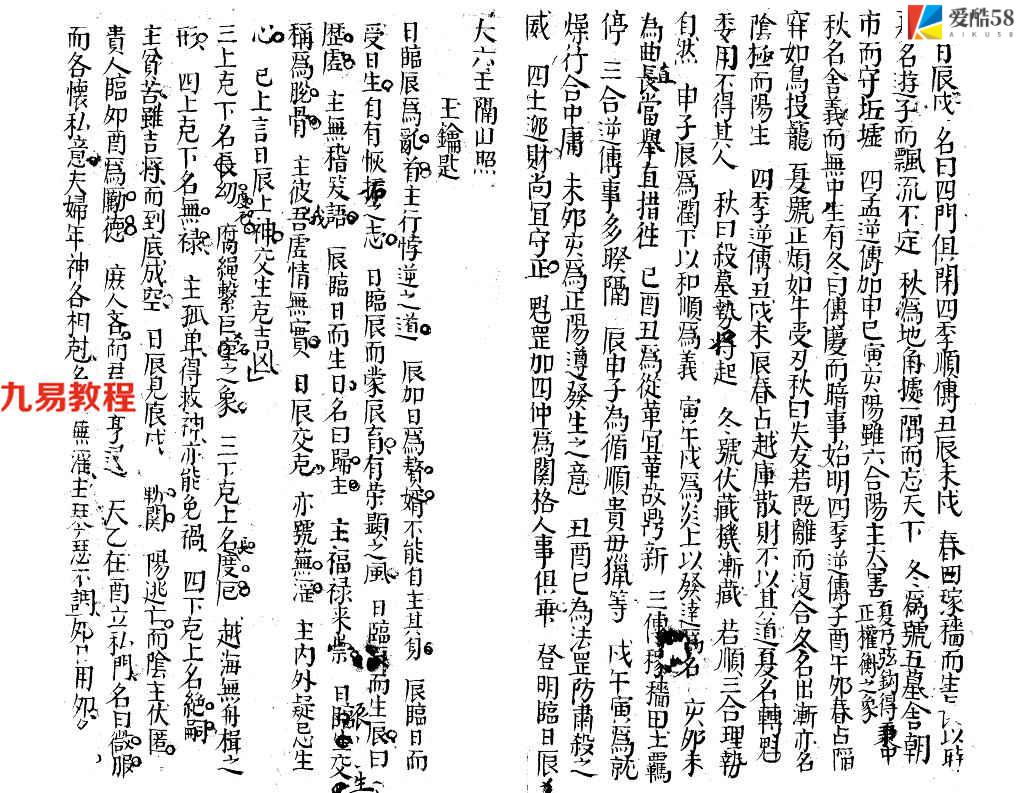 爱酷58
AIKU58
日辰戌 名曰四門俱閉四季順傳丑辰未戌 春曰稼穡而生
名遊子而飄流不定 秋為地角據一隅而忘天下 冬為號五墓舍朝
市而守坵墟 四孟逆傳加申巳寅亥陽雖六合陽主大害 夏乃弦鈎得秉中正權衡之象
秋名舍義而無中生有冬曰傳慶而暗事始明四季逆傳子酉午夘春占陷
穽如鳥投籠 夏號正煩如牛受刃秋曰失友若既離而復合冬名出漸亦名
陰極而陽生 四季逆傳丑戌未辰春占越庫散財不以其道夏名轉魁
委用不得其人 秋曰殺墓勢將起 冬號伏藏機漸藏 若順三合理勢
自然 申子辰為潤下以和順為義 寅午戌為炎上以發達為名 亥夘未
為曲直長當舉直措徃 巳酉丑為從革宜革故鼎新 三傳稼穡田土羈
停 三合逆傳事多暌隔 辰申子為循順貴毋獵等 戌午寅為就
燥行合中庸 未夘亥為正陽遵發生之意 丑酉巳為法罡防肅殺之
威 四土逐財尚宜守正 魁罡加四仲為関格人事俱乖 登明臨日辰
大六壬隔山照
玉鑰匙
日臨辰為亂首主行悖逆之道 辰加日為贅婿不能自主其身 辰臨日而
受日生自有恢振之志 日臨辰而蒙辰育有荣顯之風 日臨辰而生辰曰
歷虛 主無稽发語 辰臨日而生日名曰歸主 主福禄来崇 日臨交
稱為脫骨 主彼吾虛情無實 日辰交克 亦號蕪滛 主内外疑忌生
心 已上言日辰上神交生克吉凶
三上克下名長幼 腐繩繫巨室之象 三下克上名度厄 越海無舟楫之
形 四上克下名無禄 主孤单得救神亦能免禍 四下克上名絶嗣
主貧苦雖吉將而到底成空 日辰見辰戌 勅関 陽逃亡而陰主伏匿
貴人臨夘酉為勵德 庶人吝而君 亨 天乙在酉立私門 名曰微服
而各懷私意夫婦年神各相尅名 蕪滛主琴瑟不調 用夘
九易教程